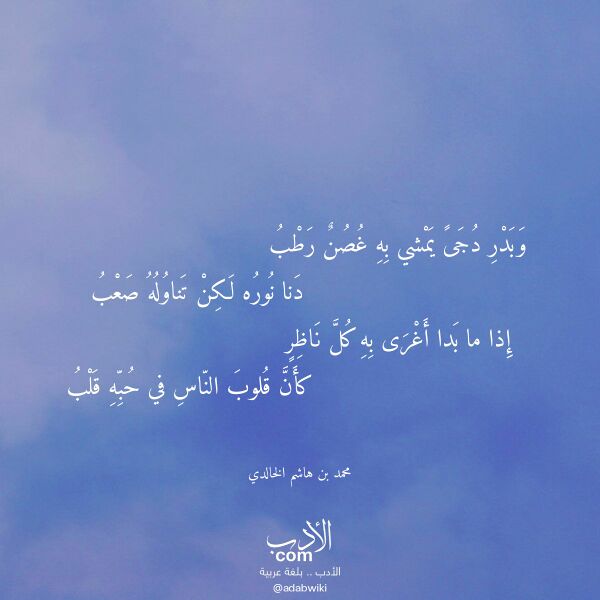 وَبَدْرِ دُجَىً يَمْشي بِهِ غُصُنٌ رَطْبُ
دَنا نُورُه لَكِنْ تَناوُلُهُ صَعْبُ
إِذا ما بَدا أَغْرَى بِهِ كُلَّ نَاظِرٍ
كأَنَّ قُلوبَ النّاسِ في حُبِّهِ قَلْبُ
محمد بن هاشم الخالدي
الأدب
com
الأدب .. بلغة عربية
@adabwiki